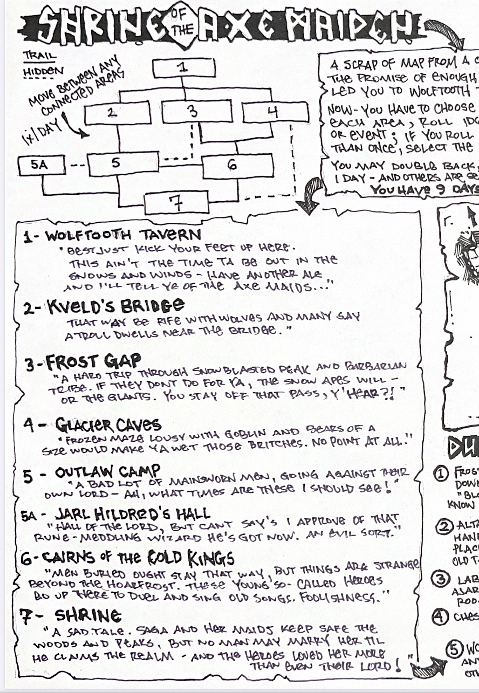 SHRINE OF THE AXE MAIDEN
TRAIL
HIDDEN
MOVE BETWEEN ANY
CONNECTED AREAS
1x/DAY
1
2
3
4
5A
5
6
7
A SCRAP OF MAP FROM A
THE PROMISE OF ENOUGH
LED YOU TO WOLFTOOTH
NOW- YOU HAVE TO CHOOSE
EACH AREA, ROLL 1D
OR EVENT; IF YOU ROLL
THAN ONCE, SELECT THE
YOU MAY DOUBLE BACK,
1 DAY - AND OTHERS ARE
YOU HAVE 9 DAYS
1- WOLFTOOTH TAVERN
"BEST JUST KICK YOUR FEET UP HERE.
THIS AIN'T THE TIME TA BE OUT IN THE
SNOWS AND WINDS - HAVE ANOTHER ALE
AND I'LL TELL YE OF THE AXE MAIDS..."
2- KVELD'S BRIDGE
THAT WAY BE RIFE WITH WOLVES AND MANY SAY
A TROLL DWELLS NEAR THE BRIDGE."
3- FROST GAP
"A HARD TRIP THROUGH SNOWBLASTED PEAK AND BARBARIAN
TRIBE. IF THEY DON'T DO FOR YA, THE SNOW APES WILL -
OR THE GIANTS. YOU STAY OFF THAT PASS, Y'HEAR?!"
4- GLACIER CAVES
"FROZEN MAZE LOUSY WITH GOBLIN AND BEARS OF A
SIZE WOULD MAKE YA WET THOSE BRITCHES. NO POINT AT ALL."
5 - OUTLAW CAMP
"A BAD LOT OF MAINSWORN MEN, GOING AGAINST THEIR
OWN LORD - AH, WHAT TIMES ARE THESE I SHOULD SEE!"
5A- JARL HILDRED'S HALL
"HALL OF THE LORD, BUT CAN'T SAY'S I APPROVE OF THAT
RUNE-MEDDLING WIZARD HE'S GOT NOW. AN EVIL SORT."
6- CAIRNS OF THE COLD KINGS
"MEN BURIED OUGHT STAY THAT WAY, BUT THINGS ARE STRANGE
BEYOND THE HOARFROST. THESE YOUNG SO-CALLED HEROES
GO UP THERE TO DUEL AND SING OLD SONGS. FOOLISHNESS."
7- SHRINE
"A SAD TALE. SAGA AND HER MAIDS KEEP SAFE THE
WOODS AND PEAKS, BUT NO MAN MAY MARRY HER TIL
HE CLAIMS THE REALM - AND THE HEROES LOVED HER MORE
THAN EVEN THEIR LORD!"
DU
1 FROS
DOWN
"BL
KNOW
2 ALTA
HAND
PLAC
OLD T
3 LAB
ASAR
ROD
4 CHES
5 WO
AN
OT